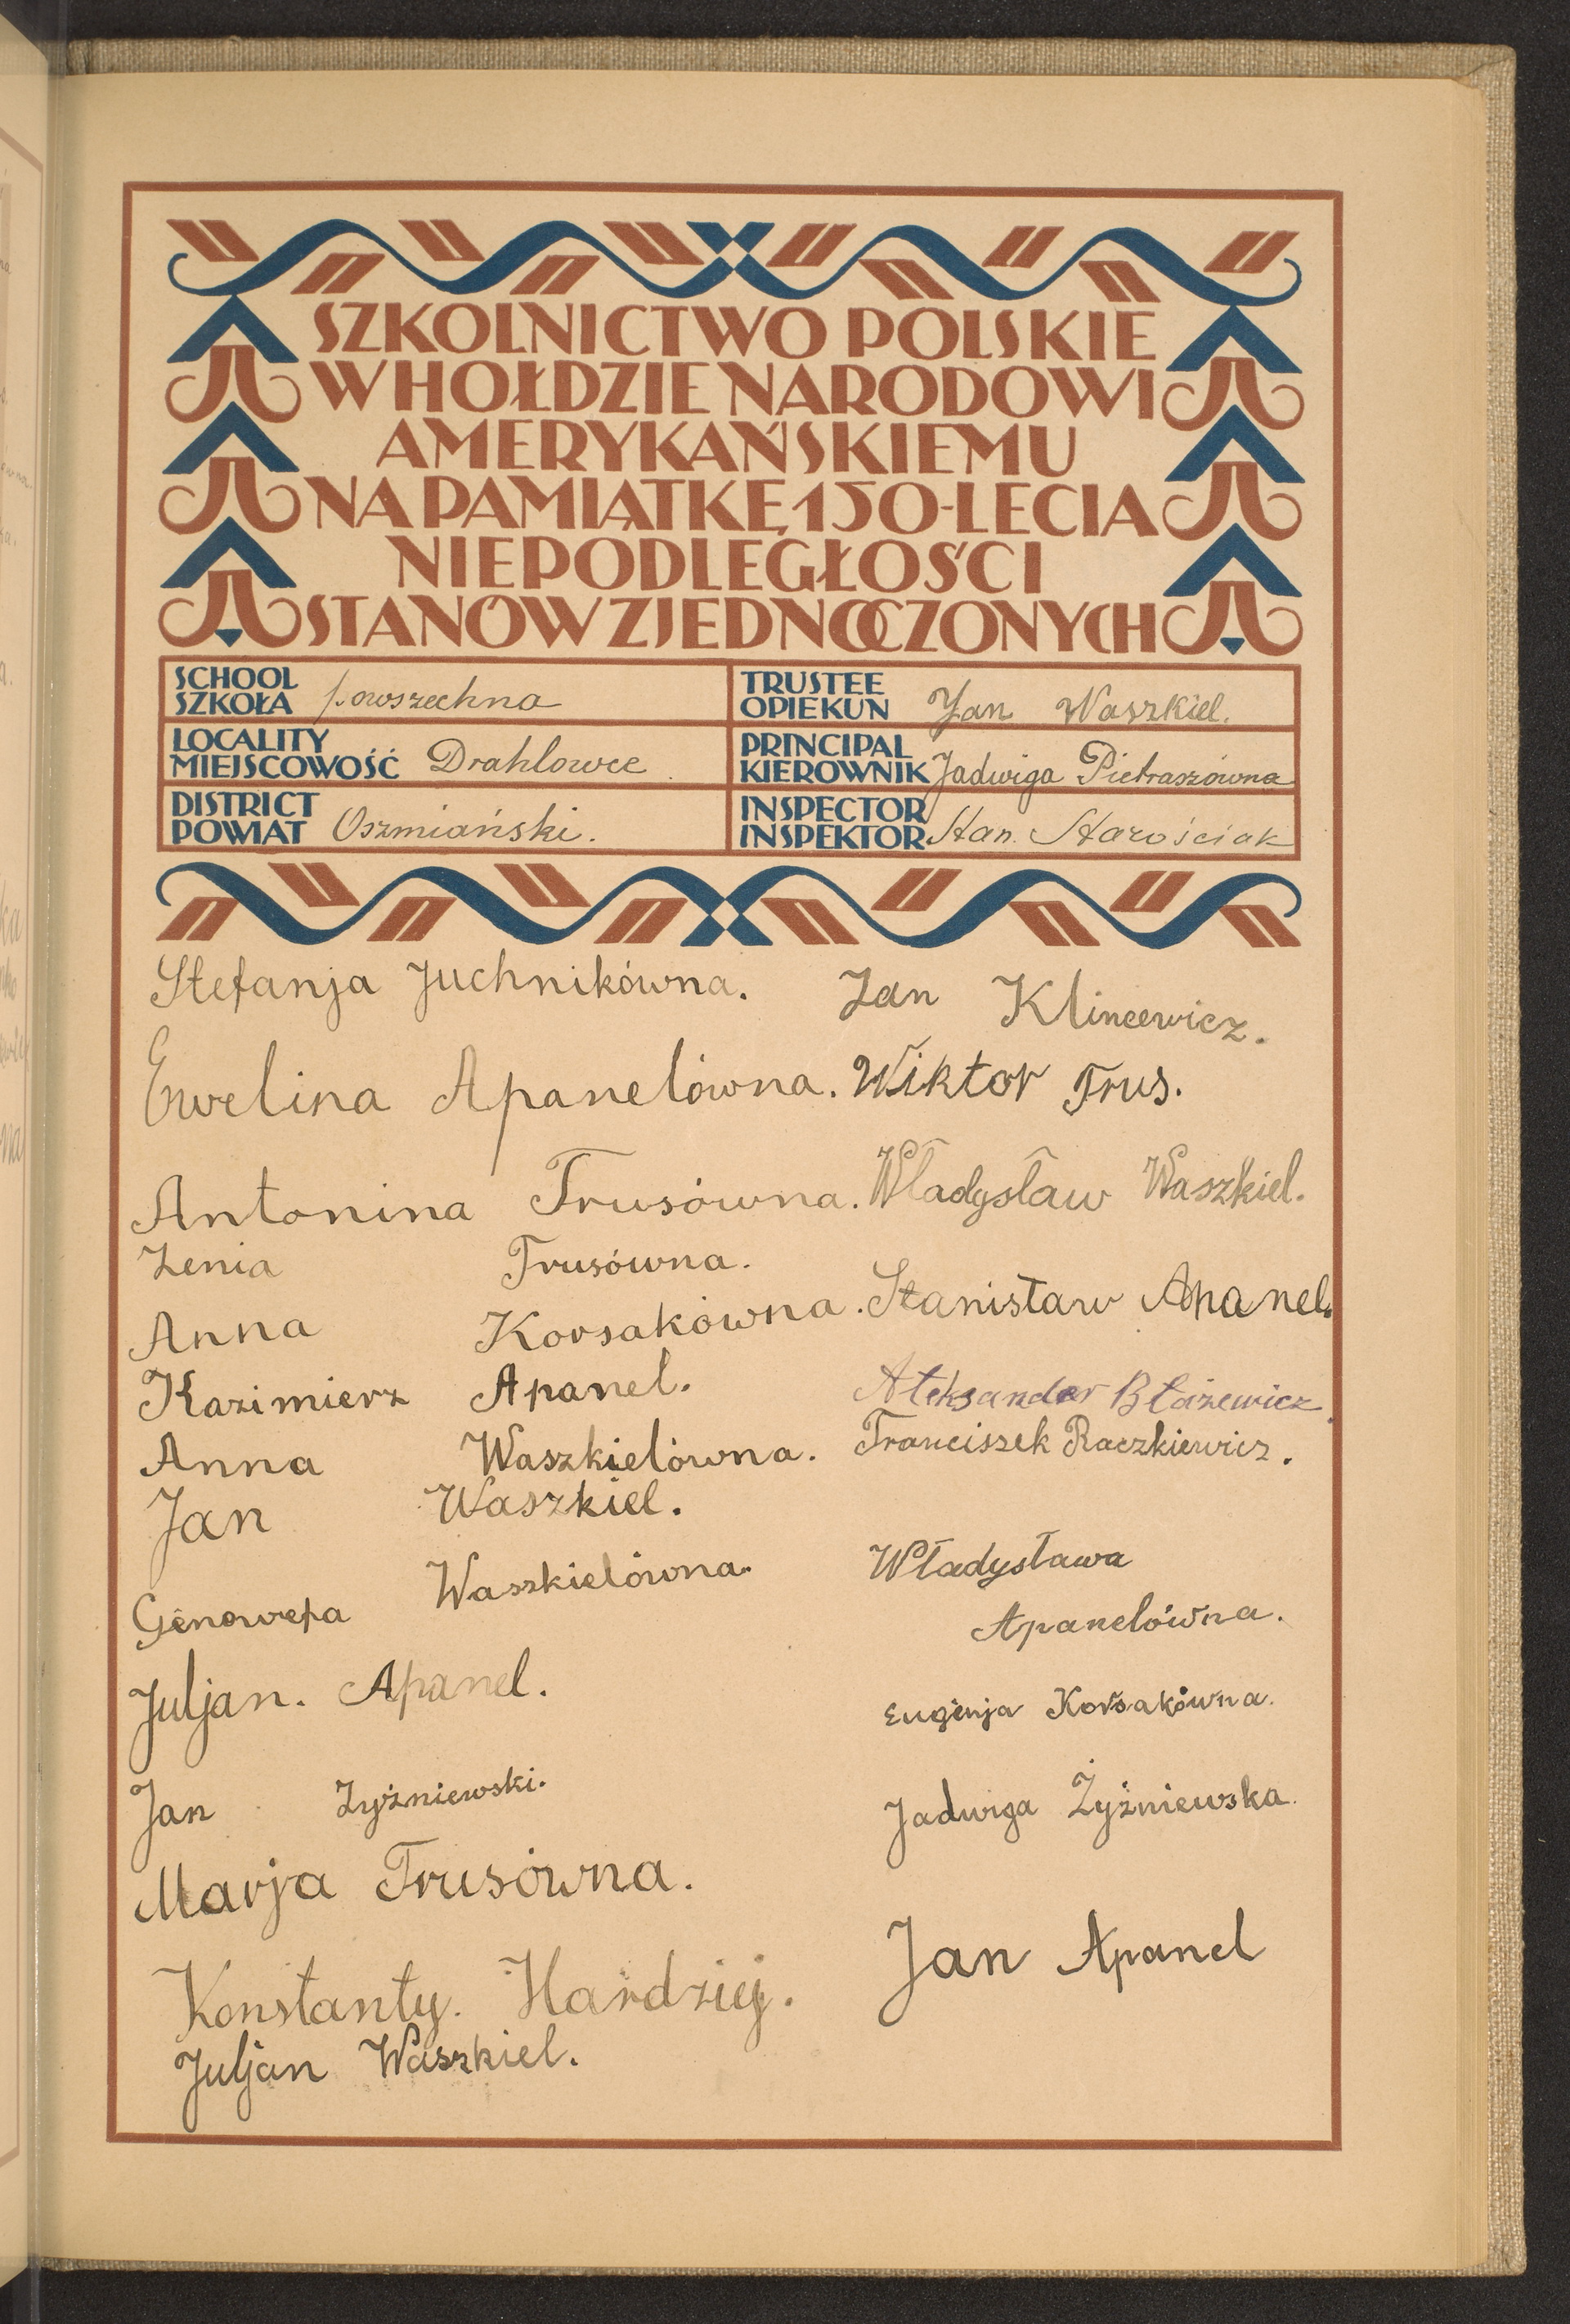 SZKOLNICTWO POLSKIE
W HOŁDZIE NARODOWI
AMERYKAŃSKIEMU
NA PAMIĄTKĘ 150-LECIA
NIEPODLEGŁOŚCI
STANÓW ZJEDNOCZONYCH
SCHOOL
SZKOŁA powszechna
LOCALITY
MIEJSCOWOŚĆ Drahlowce
DISTRICT
POWIAT Oszmiański.
TRUSTEE
OPIEKUN Jan Waszkiel.
PRINCIPAL
KIEROWNIK Jadwiga Pietraszówna
INSPECTOR
INSPEKTOR Stan. Starościak
Stefanja Juchnikówna.
Ewelina Apanelówna.
Antonina Trusówna.
Zenia Trusówna.
Anna Korsakówna.
Kazimierz Apanel.
Anna Waszkielówna.
Jan Waszkiel.
Genowefa Waszkielówna.
Juljan. Apanel.
Jan Zyżniewski.
Marja Trusówna.
Konstanty. Hardziej.
Juljan Waszkiel.
Jan Klincewicz.
Wiktor Trus.
Władysław Waszkiel.
Stanisław Apanel.
Aleksander Błażewicz.
Franciszek Raczkiewicz.
Władysława
Apanelówna.
Eugenja Korsakówna.
Jadwiga Żyżniewska.
Jan Apanel